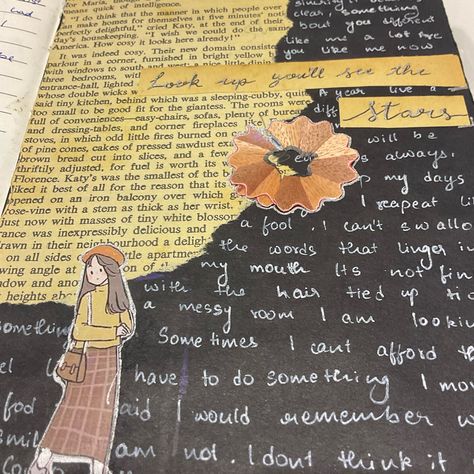 for Maria, though
of intelligence.
"I do think that the manner in which people over
make homes for themselves at five minutes' noti
perfectly delightful," cried Katy, at the end of their
day's housekeeping. "I wish we could do the same
America. How cosy it looks here already!"
It was indeed cosy. Their new domain consisted
parlour in a corner, furnished in bright yellow
with windows to south and west, a nice little dining
three bedrooms, with
entrance-hall, lighted
whose double wicks
said tiny kitchen, behind which was a sleeping-cubby, quite
too small to be good for the giantess. The rooms were
full of conveniences—easy-chairs, sofas, plenty of bureaus
and dressing-tables, and corner fireplaces like
stoves, in which odd little fires burned on
of pine cones, cakes of pressed sawdust exa
brown bread cut into slices, and a few
thriftily adjusted, for fuel is worth its
Florence. Katy's was the smallest of the b
liked it best of all for the reason that its
opened on an iron balcony over which g
rose-vine with a stem as thick as her wrist.
just now with masses of tiny white blossom
rance was inexpressibly delicious and
drawn in their neighbourhood a delight
n all sides
wing angle at
window and ano
f heights abo
clear. Something
about you different
like me a lot
you like me now
Look up you'll see the
Stars
A year like a
will be
as always,
my days
I repeat
a fool. I can't swallo
the words that linger i
my mouth Its not fin
with the hair tied up
a messy room I am lookin
something
Sometimes I cant afford th
have to do something I mo
food said I would remember
Smil am not. I dont think it